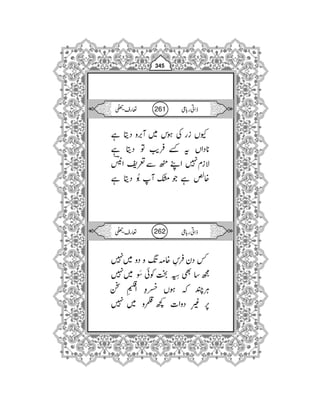 345
ذاتی رباعی 261 تعارف جعفی
کیوں زر کی ہوس میں آبرو دیتا ہے
ناداں یہ کسے فریب تو دیتا ہے
لازم نہیں اپنے منھ سے تعریف انیسؔ
خالص ہے جو مشک آپ بُو دیتا ہے
ذاتی رباعی 262
کس دن فرسِ خامہ تگ و دو میں نہیں
مجھ سا بھی سیہ بخت کوئی سَو میں نہیں
ہرچند کہ ہوں خسروِ اقلیمِ سخن
پر غیر دوات کچھ قلمرو میں نہیں